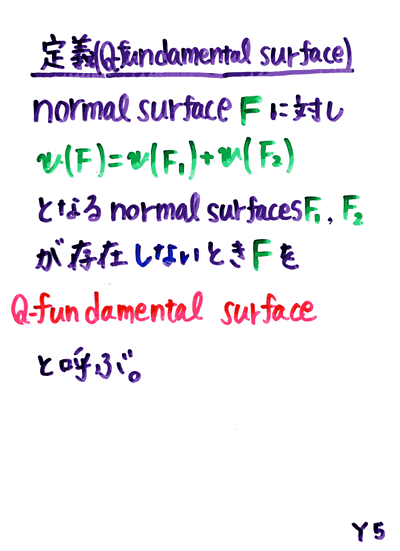 定義(Qfundamental surface)
normal surface Fに対し
v(F)=v(F₁)+v(F₂)
となるnormal surfacesF₁, F₂
が存在しないときFを
Q-fundamental surface
と呼ぶ。
Y5